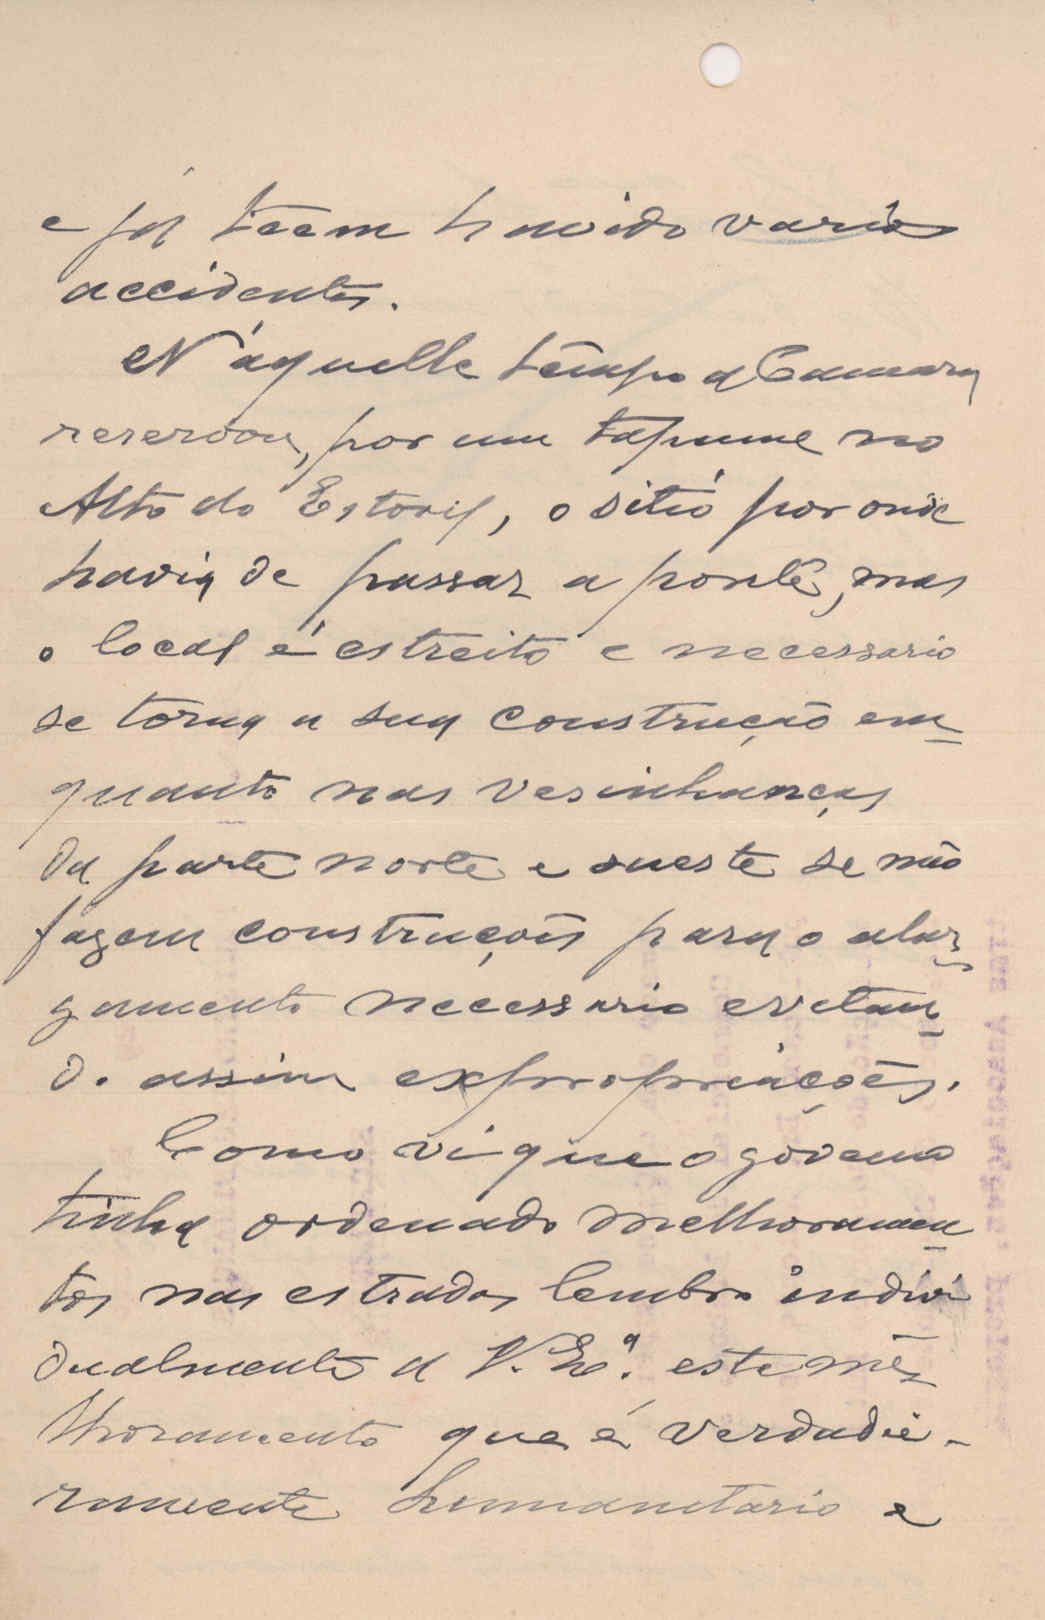 e já teem havido varios
accidentes.
N'aquelle tempo a Camara
reservou, por um tapume no
Alto do Estoril, o sitio por onde
havia de passar a ponte, mas
o local é estreito e necessario
se torna a sua construção em-
quanto nas vesinhanças
da parte norte e sueste se não
fazem construções para o alar-
gamento necessario evetan-
do assim expropriações.
Como vi que o govêrno
tinha ordenado melhoramen-
tos nas estradas lembro indivi
dualmente a V. Exª. este me-
lhoramento que é verdadei-
ramente humanetario e